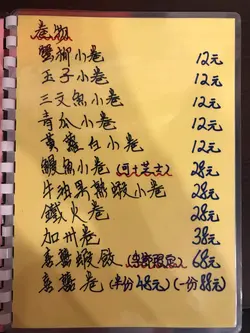 卷類
蟹柳小卷 12元
玉子小卷 12元
三文魚小卷 12元
青瓜小卷 12元
黃蘿白小卷 12元
鰻魚小卷 (可芝士) 28元
牛油果熟蝦小卷 28元
鐵火卷 28元
加州卷 38元
68元
卷 (半份48元) (一份88元)